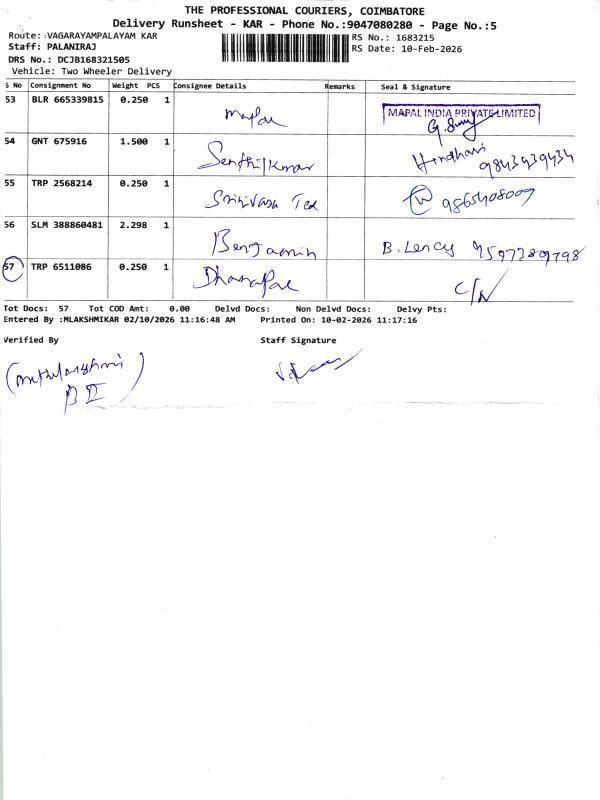 THE PROFESSIONAL COURIERS, COIMBATORE
Delivery Runsheet - KAR - Phone No.:9047080280 - Page No.:5
Route: :VAGARAYAMPALAYAM KAR RS No.: 1683215
Staff: PALANIRAJ RS Date: 10-Feb-2026
DRS No.: DCJB168321505
Vehicle: Two Wheeler Delivery
S No Consignment No Weight PCS Consignee Details Remarks Seal & Signature
53 BLR 665339815 0.250 1 Mapal MAPAL INDIA PRIVATE LIMITED
54 GNT 675916 1.500 1 Senthilkumar 9843939434
55 TRP 2568214 0.250 1 Srinivasa Tex 9865408009
56 SLM 388860481 2.298 1 Benjamin B. Lency 9597389798
57 TRP 6511086 0.250 1 Dhanapal C/N
Tot Docs: 57 Tot COD Amt: 0.00 Delvd Docs: Non Delvd Docs: Delvy Pts:
Entered By :MLAKSHMIKAR 02/10/2026 11:16:48 AM Printed On: 10-02-2026 11:17:16
Verified By Staff Signature